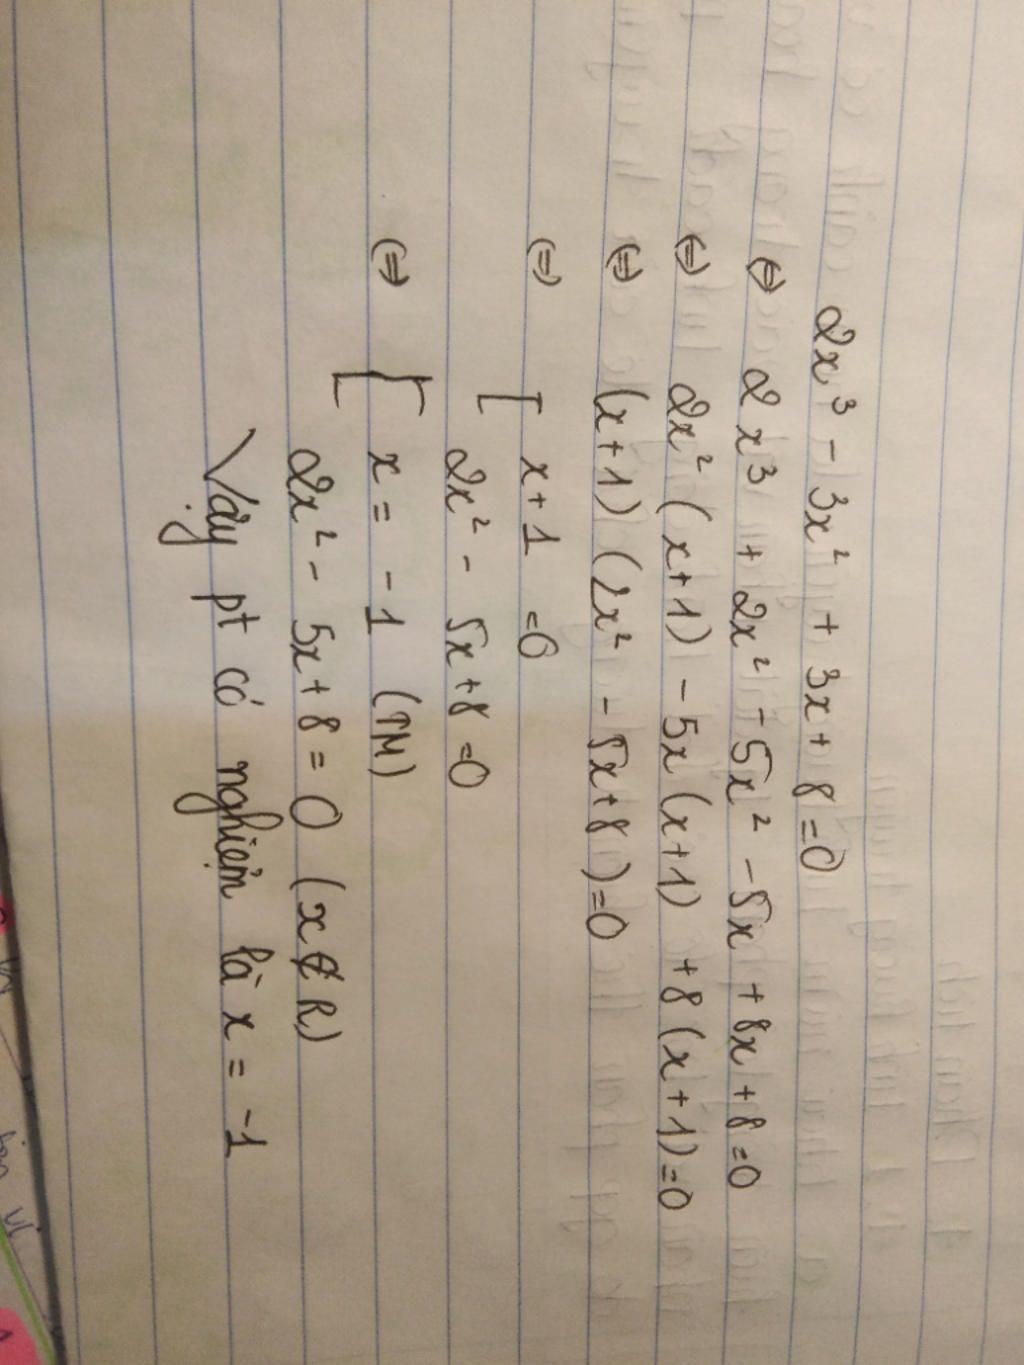 2x³ - 3x² + 3x + 8 = 0
(=) 2x³ + 2x² - 5x² - 5x + 8x + 8 = 0
(=) 2x² (x+1) - 5x (x+1) + 8 (x+1) = 0
(=) (x+1) (2x² - 5x + 8) = 0
(=) [ x + 1 = 0
2x² - 5x + 8 = 0
(=) [ x = -1 (TM)
2x² - 5x + 8 = 0 (x ∉ R)
Vậy pt có nghiệm là x = -1